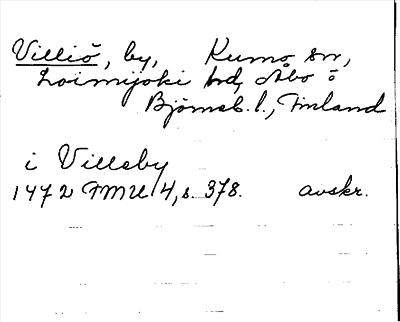 Villiö, by, Kumo sn,
Loimijoki hd, Åbo o
Björneb. l., Finland
i Villeby
1472 FMU 4, s. 378. avskr.